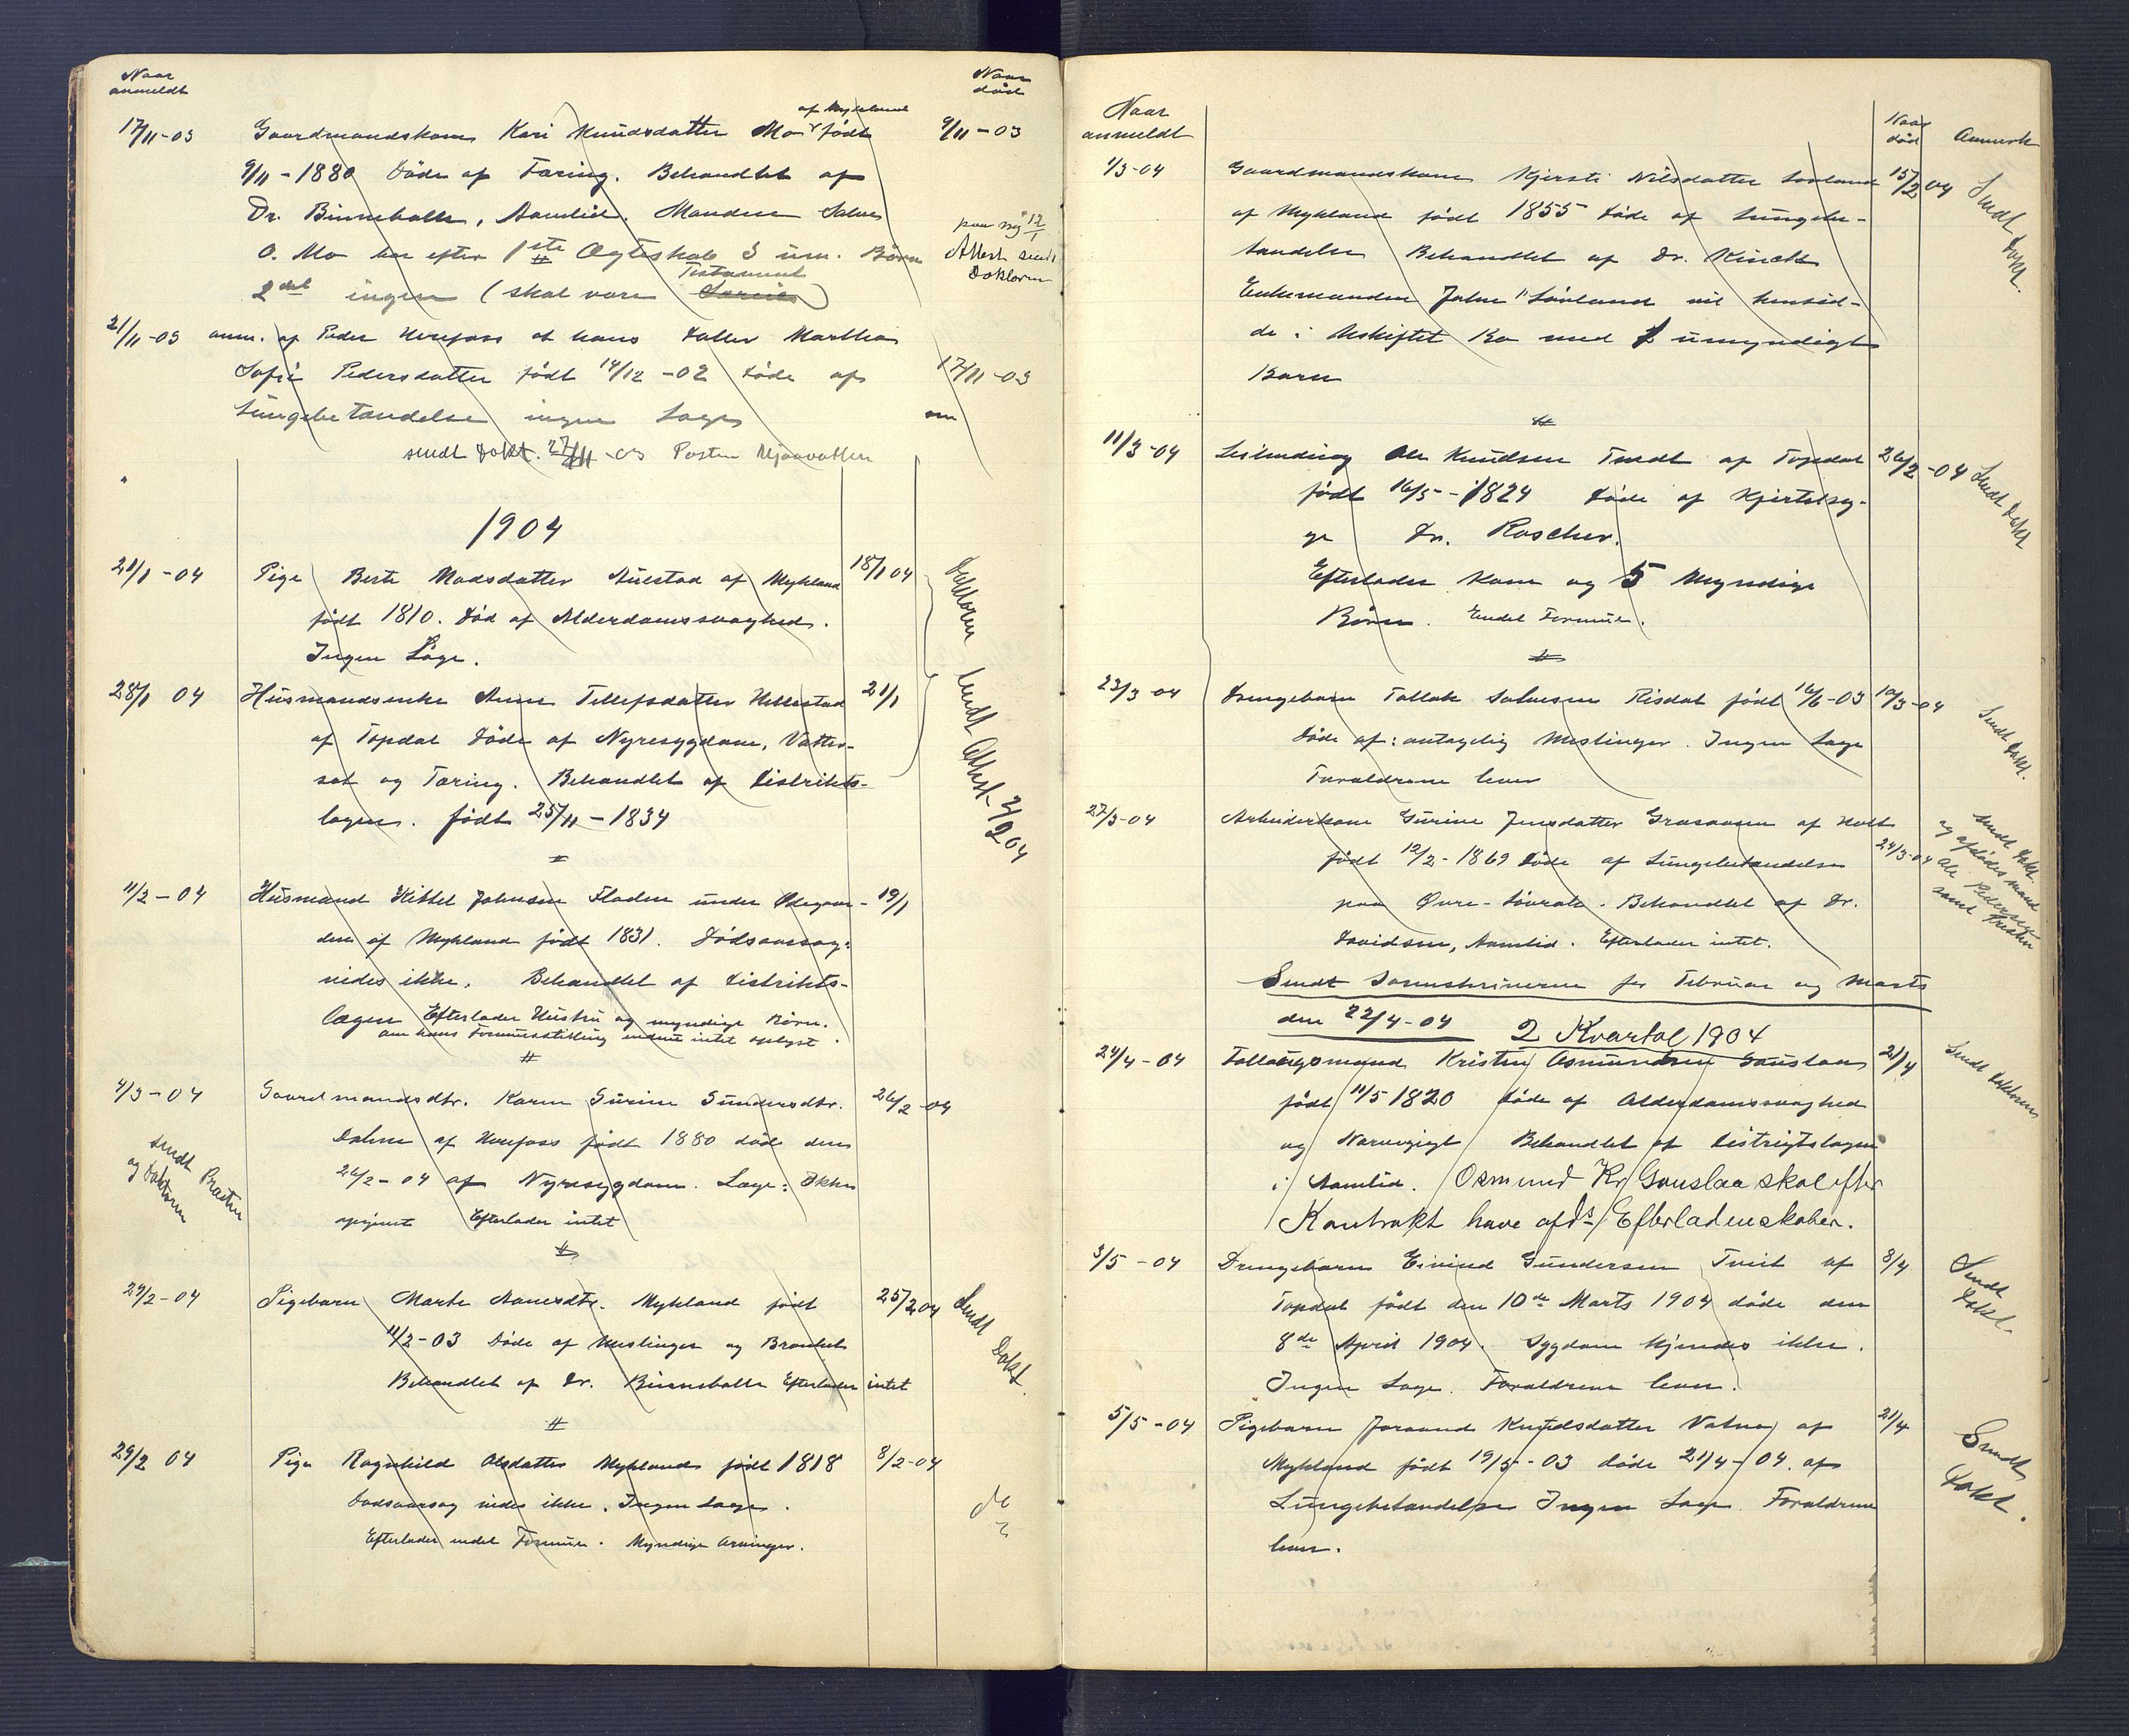 Naar
anmeldt
Naar
død
af Mykland
17/11-03 Gaardmandskone Kari Knudsdatter Mo født 9/11-03
9/11-1880 døde af Tæring. Behandlet af
Dr. Binneballe, Aamlid. Manden Salve
O. Mo har efter 1ste Ægteskab 3 um. Børn
paa ny 12/1
Attest sendt
Doktoren
Testament
2det ingen (skal være
21/11-03 anm. af Peder Herefoss at hans datter Marthea
Sofie Pedersdatter født 14/12-02 døde af 17/11-03
Lungebetændelse ingen Læge
sendt Dokt. 27/11-03 Posten Mjaavatten
1904
21/1-04 Pige Berte Madsdatter Aulestad af Mykland 18/1 04
født 1810. Død af Alderdomssvaghed.
Ingen Læge.
28/1 04 Husmandsenke Anne Tellefsdatter Hellestad 21/1
af Topdal døde af Nyresygdom, Vatter-
sot og Tæring. Behandlet af Distrikts-
lægen. født 25/11-1834
Doktoren sendt Attest 2/2 04
11/2-04 Husmand Kittel Johnsen Fladen under Ødegaar- 19/1
den af Mykland født 1831. Dødsaarsag
vides ikke. Behandlet af Distrikts-
lægen Efterlader Hustru og myndige Børn.
om hans Formuesstilling endnu intet oplyst.
4/3-04 Gaardmandsdtr. Karen Gurine Gundersdtr. 26/2-04
Dalene af Herefoss født 1880 døde den
26/2-04 af Nyresygdom. Læge: Ikke
opgivet Efterlader intet
sendt Præsten
og Doktoren
29/2-04 Pigebarn Marte Aanesdtr. Mykland født 25/2 04
11/2-03 Døde af Meslinger og Bronkit
Behandlet af Dr. Binneballe Efterlader intet
Sendt Dokt.
29/2 04 Pige Ragnhild Olsdatter Mykland født 1818 8/2-04
Dødsaarsag vides ikke. Ingen Læge.
Efterlader endel Formue. Myndige Arvinger.
do
Naar
anmeldt
Naar
død
Anmerk
1/3-04 Gaardmandskone Kjersti Nilsdatter Løvland 15/2 04
af Mykland født 1855 døde af Lungebe-
tændelse Behandlet af Dr. Kinck
Enkemanden John Løvland vil hensid-
de i Uskiftet Bo med 1 umyndigt
Barn
Sendt Dokt.
11/3-04 Leilending Ole Knudsen Tvedt af Topdal 26/2-04
født 16/5-1824 Døde af Kjertelsy-
ge Dr. Roscher.
Efterlader Kone og 5 Myndige
Børn. Endel Formue.
Sendt Dokt
23/3-04 Drengebarn Tallak Salvesen Risdal født 16/6-03 19/3-04
Døde af: antagelig Meslinger. Ingen Læge
Forældrene lever
Sendt Dokt.
27/3-04 Arbeiderkone Gurine Jensdatter Graaaasen af Holt
født 12/2-1869 Døde af Lungebetændelse 24/3-04
paa Øvre-Løvrak. Behandlet af Dr.
Davidsen, Aamlid. Efterlader intet.
Sendt Dokt.
og afdødes mand
Ole Pedersen
samt Presten
Sendt Sorenskriveren for Februar og Marts
den 22/4-04 2 Kvartal 1904
24/4-04 Follaugsmand Kristen Osmundsen Gauslaa 21/4
født 11/5 1820 døde af Alderdomssvaghed
og Nervegigt Behandlet af Distrigtslægen
i Aamlid. Osmund Kr. Gauslaa skal efter
Kontrakt have afds. Efterladenskaber.
Sendt Doktoren
3/5-04 Drengebarn Eivind Gundersen Tveit af 8/4
Topdal født den 10de Marts 1904 døde den
8de April 1904. Sygdom kjendes ikke.
Ingen Læge. Forældrene lever.
Sendt
Dokt.
5/5-04 Pigebarn Joraand Knudsdatter Vatne af 21/4
Mykland født 19/5-03 døde 21/4-04 af
Lungebetændelse Ingen Læge. Forældrene
lever.
Sendt
Dokt.